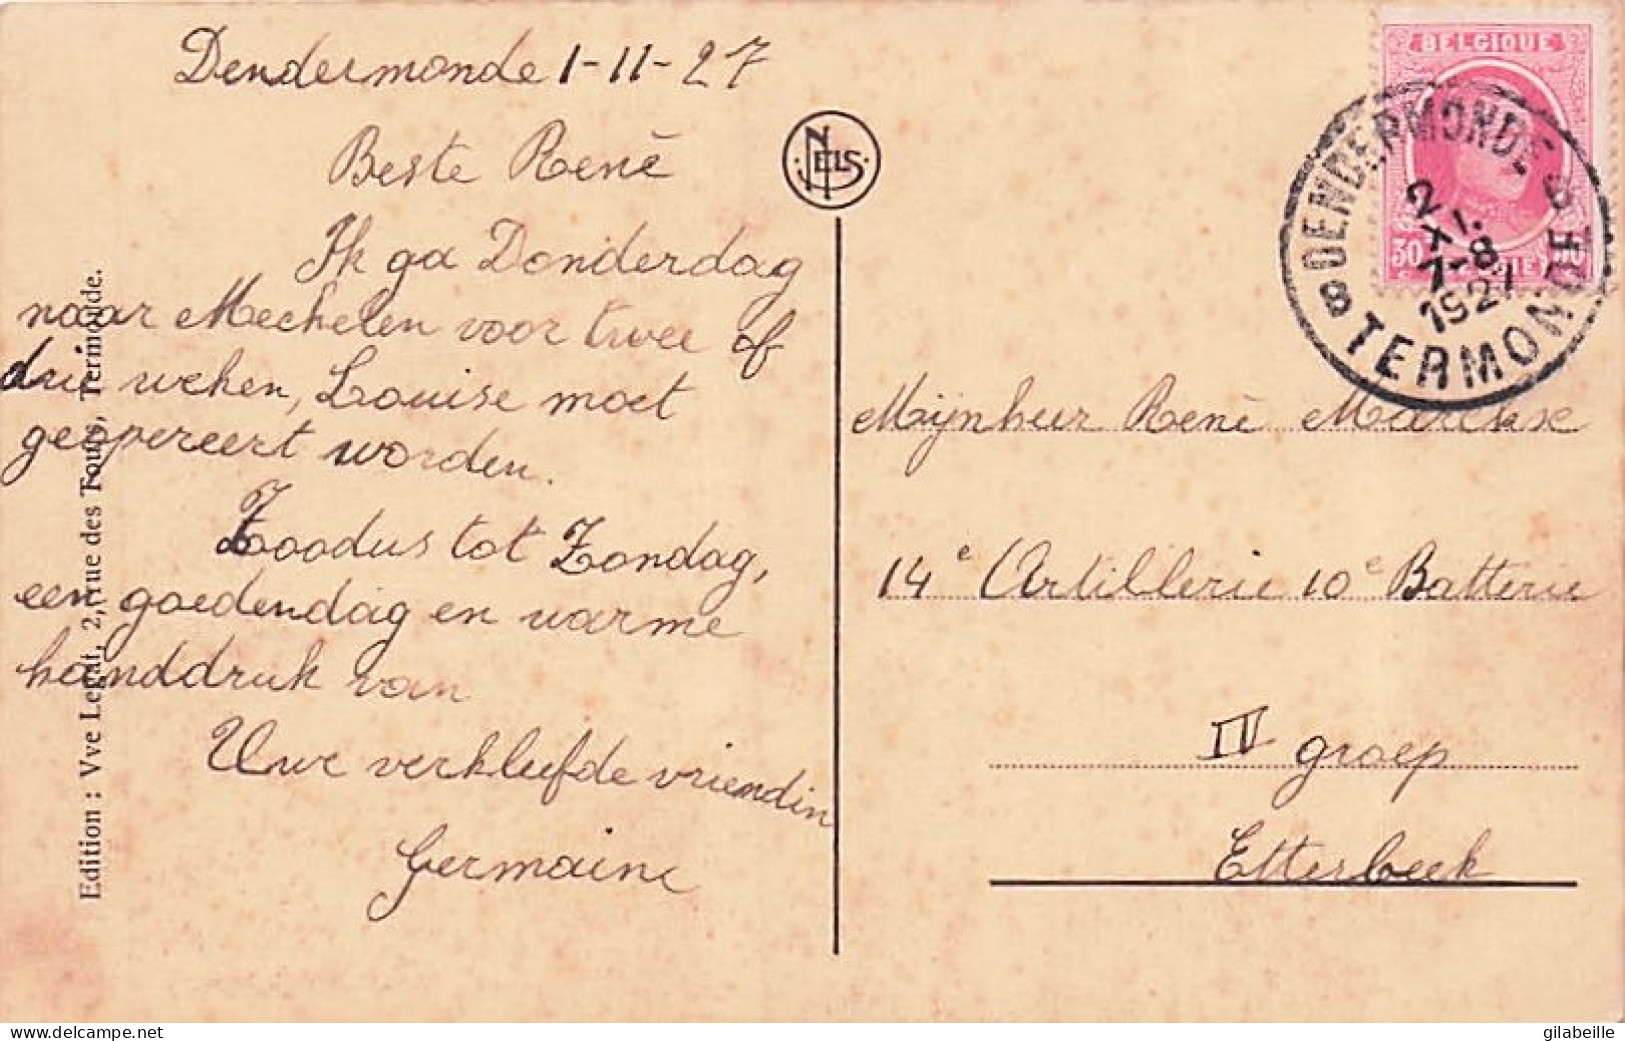 Dendermonde 1-11-27
Beste Renè
Ik ga Donderdag
naar Mechelen voor twee of
drie weken, Louise moet
geopereert worden.
Zoodus tot Zondag,
een goedendag en warme
handdruk van
Uwe verkleefde vriendin
Germaine
Edition : Vve Legat, 2, rue des Tours, Termonde.
NELS
BELGIQUE
30
DENDERMONDE
2
XI.
7-8
1927
8 TERMONDE
Mijnheer Renè
14e Artillerie 10e Batterie
IV groep
Etterbeek
delcampe.net
gilabeille